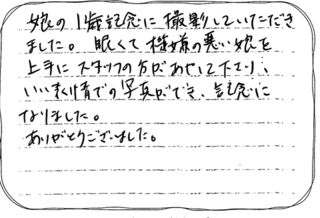 娘の1歳記念に撮影していただき
ました。眠くて機嫌の悪い娘を
上手にスタッフの方があやして下さり、
いい表情での写真ができ、記念に
なりました。
ありがとうございました。